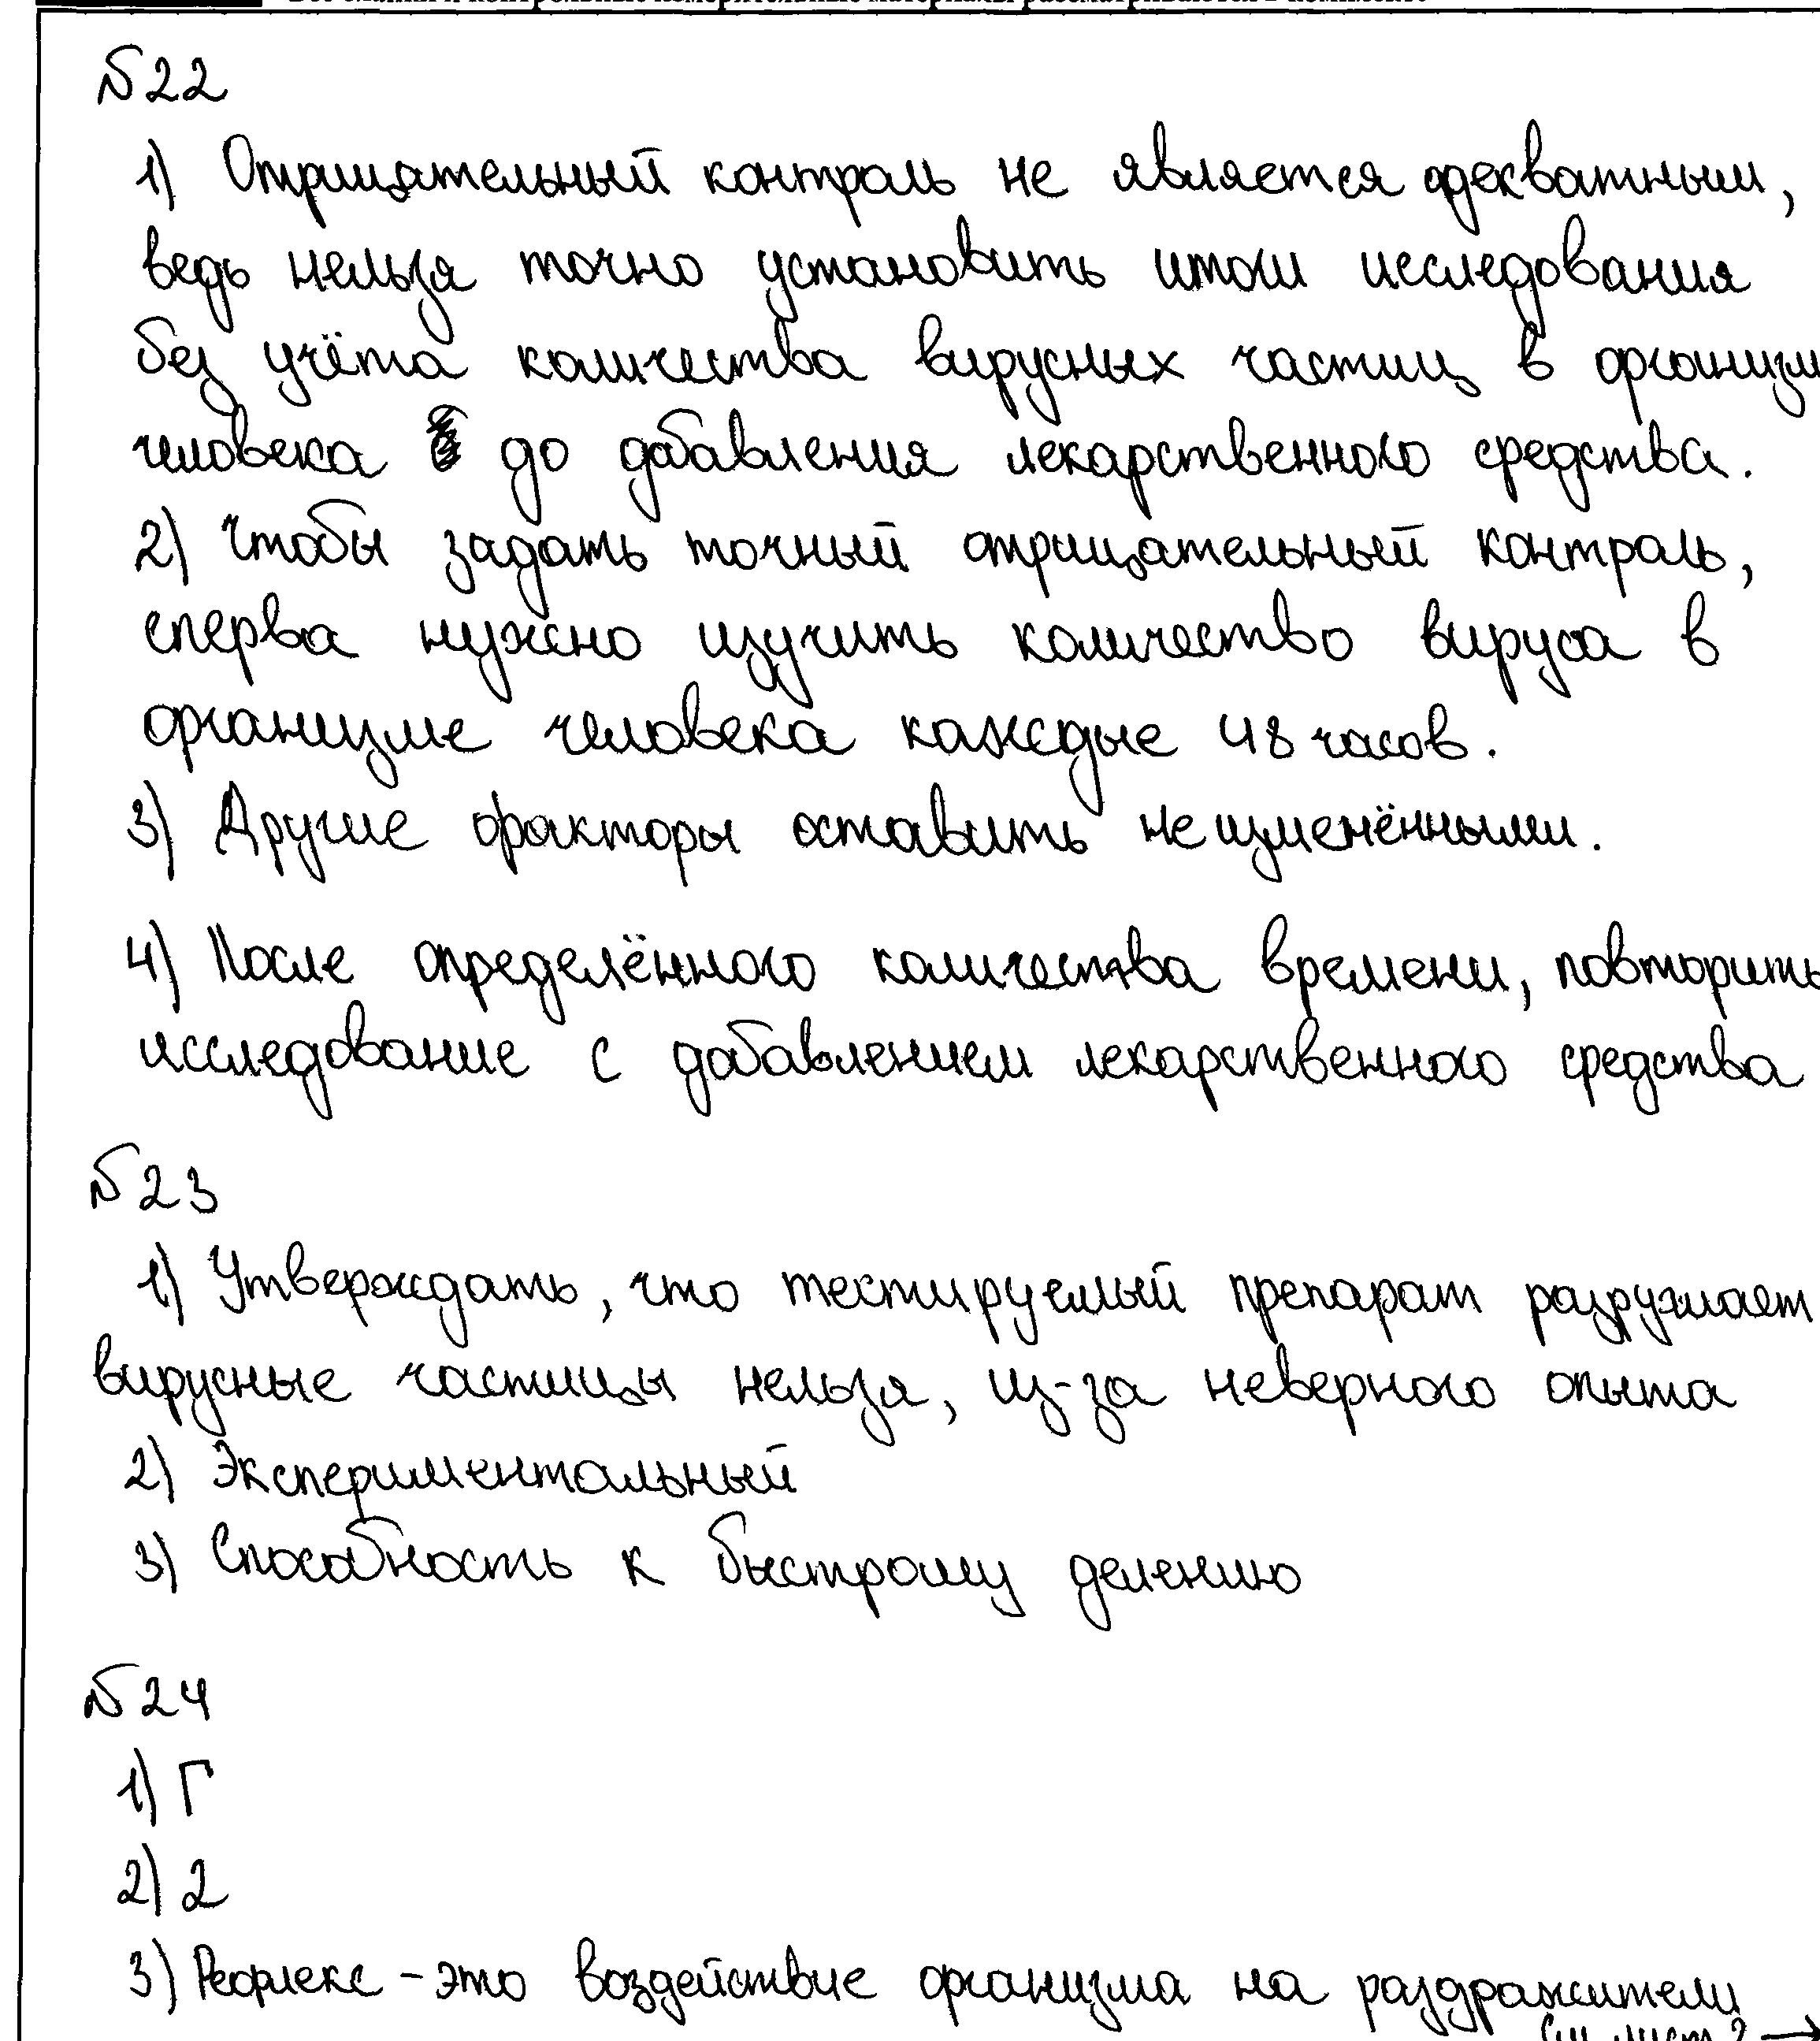 Все бланки и контрольные измерительные материалы рассматриваются в комплекте
№22
1) Отрицательный контроль не является адекватным,
ведь нельзя точно установить итоги исследования
без учёта количества вирусных частиц в организм
человека до добавления лекарственного средства.
2) Чтобы задать точный отрицательный контроль,
сперва нужно изучить количество вируса в
организме человека каждые 48 часов.
3) Другие факторы оставить неизменёнными.
4) После определённого количества времени, повторить
исследование с добавлением лекарственного средства
№23
1) Утверждать, что тестируемый препарат разрушает
вирусные частицы нельзя, из-за неверного опыта
2) Экспериментальный
3) Способность к быстрому делению
№24
1) Г
2) 2
3) Рефлекс - это воздействие организма на раздражители
См. лист 2 →